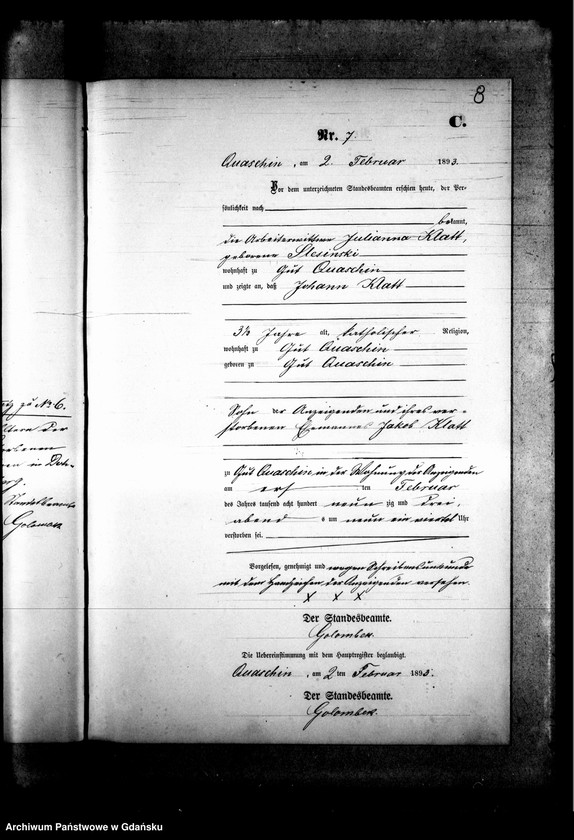 8
C.
Nr. 7
Quaschin, am 2. Februar 1893.
Vor dem unterzeichneten Standesbeamten erschien heute, der Per-
sönlichkeit nach
bekannt,
die Arbeiterwittwe Julianna Klatt,
geborene Slesinski
wohnhaft zu Gut Quaschin
und zeigte an, daß Johann Klatt
3½ Jahre alt, katholischer Religion,
wohnhaft zu Gut Quaschin
geboren zu Gut Quaschin
Sohn der Anzeigenden und ihres ver-
storbenen Ehemannes Jakob Klatt
zu Gut Quaschin in der Wohnung der Anzeigenden
am ersten Februar
des Jahres tausend acht hundert neunzig und drei,
abends um neun ein viertel Uhr
verstorben sei.
Vorgelesen, genehmigt und wegen Schreibensunkunde
mit dem Handzeichen der Anzeigenden versehen.
X X X
Der Standesbeamte.
Golombek.
Die Uebereinstimmung mit dem Hauptregister beglaubigt.
Quaschin, am 2ten Februar 1893.
Der Standesbeamte.
Golombek.
zu No 6.
der
in
Golombek
Archiwum Państwowe w Gdańsku